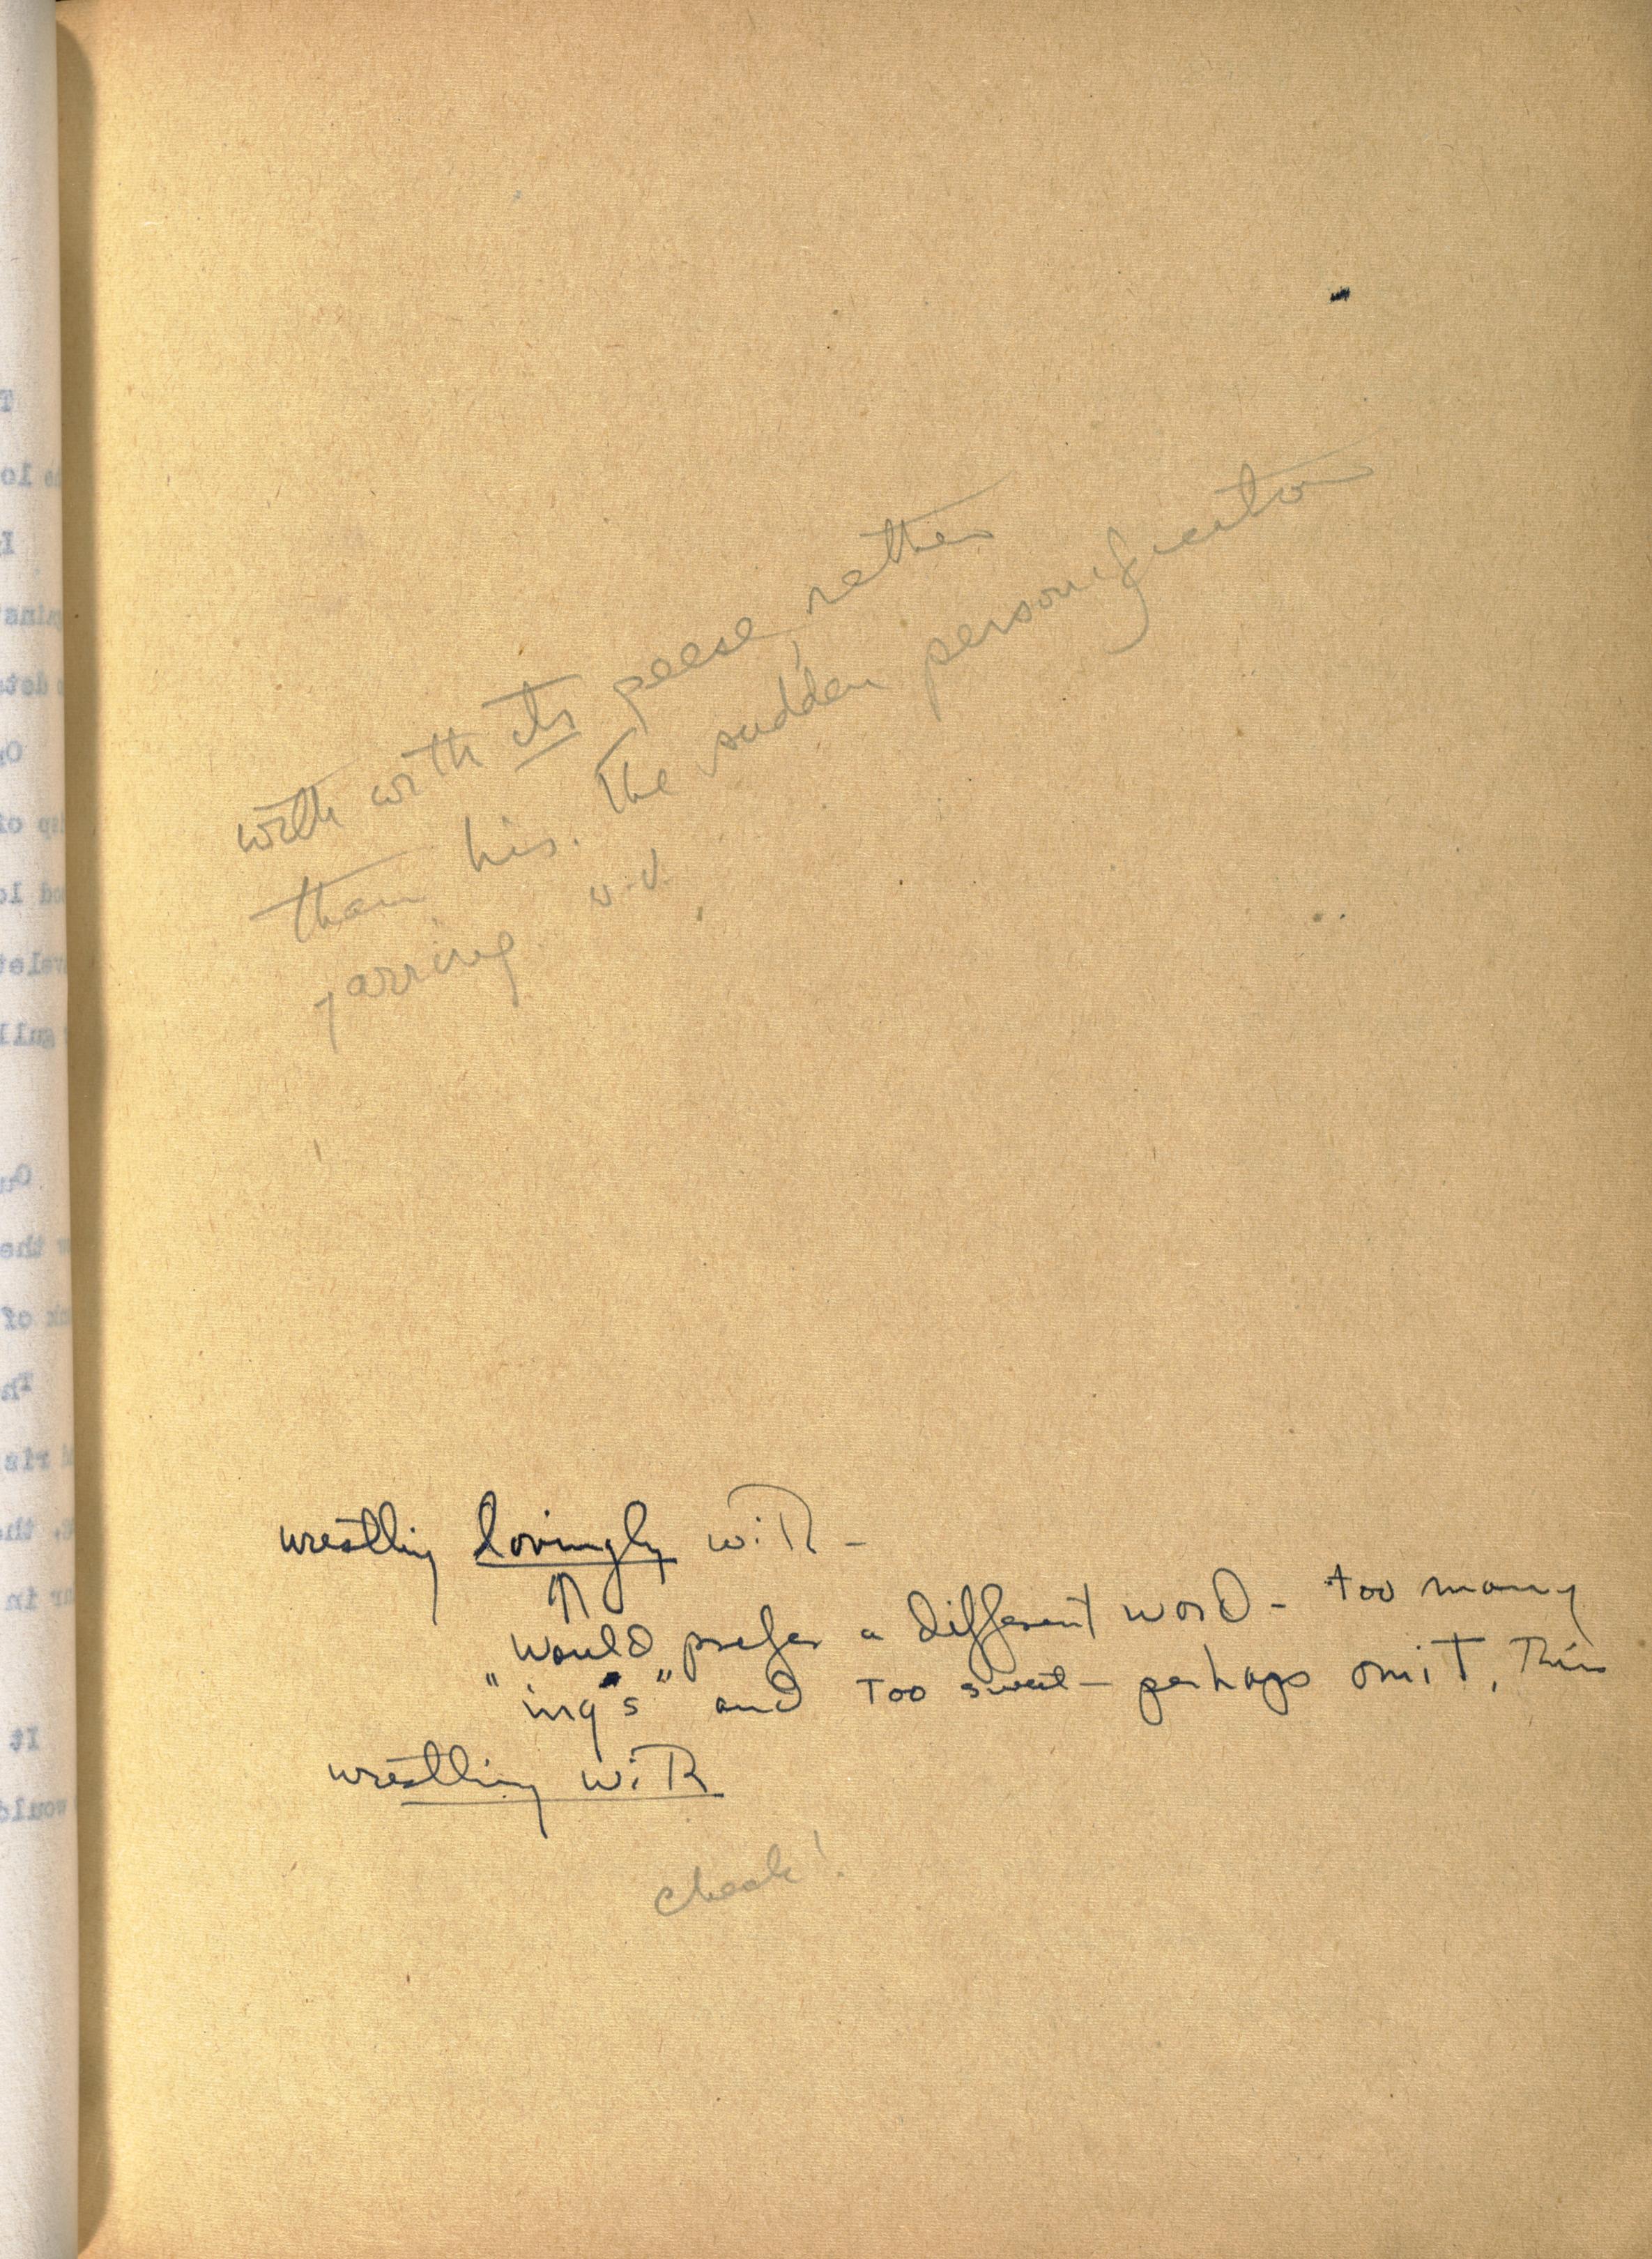 with with its peese, rather
than his. The sudden personification
jarring. v.v.
wrestling lovingly with -
would prefer a different word - too many
"ing's" and too sweet - perhaps omit. Thin
wrestling with
check!